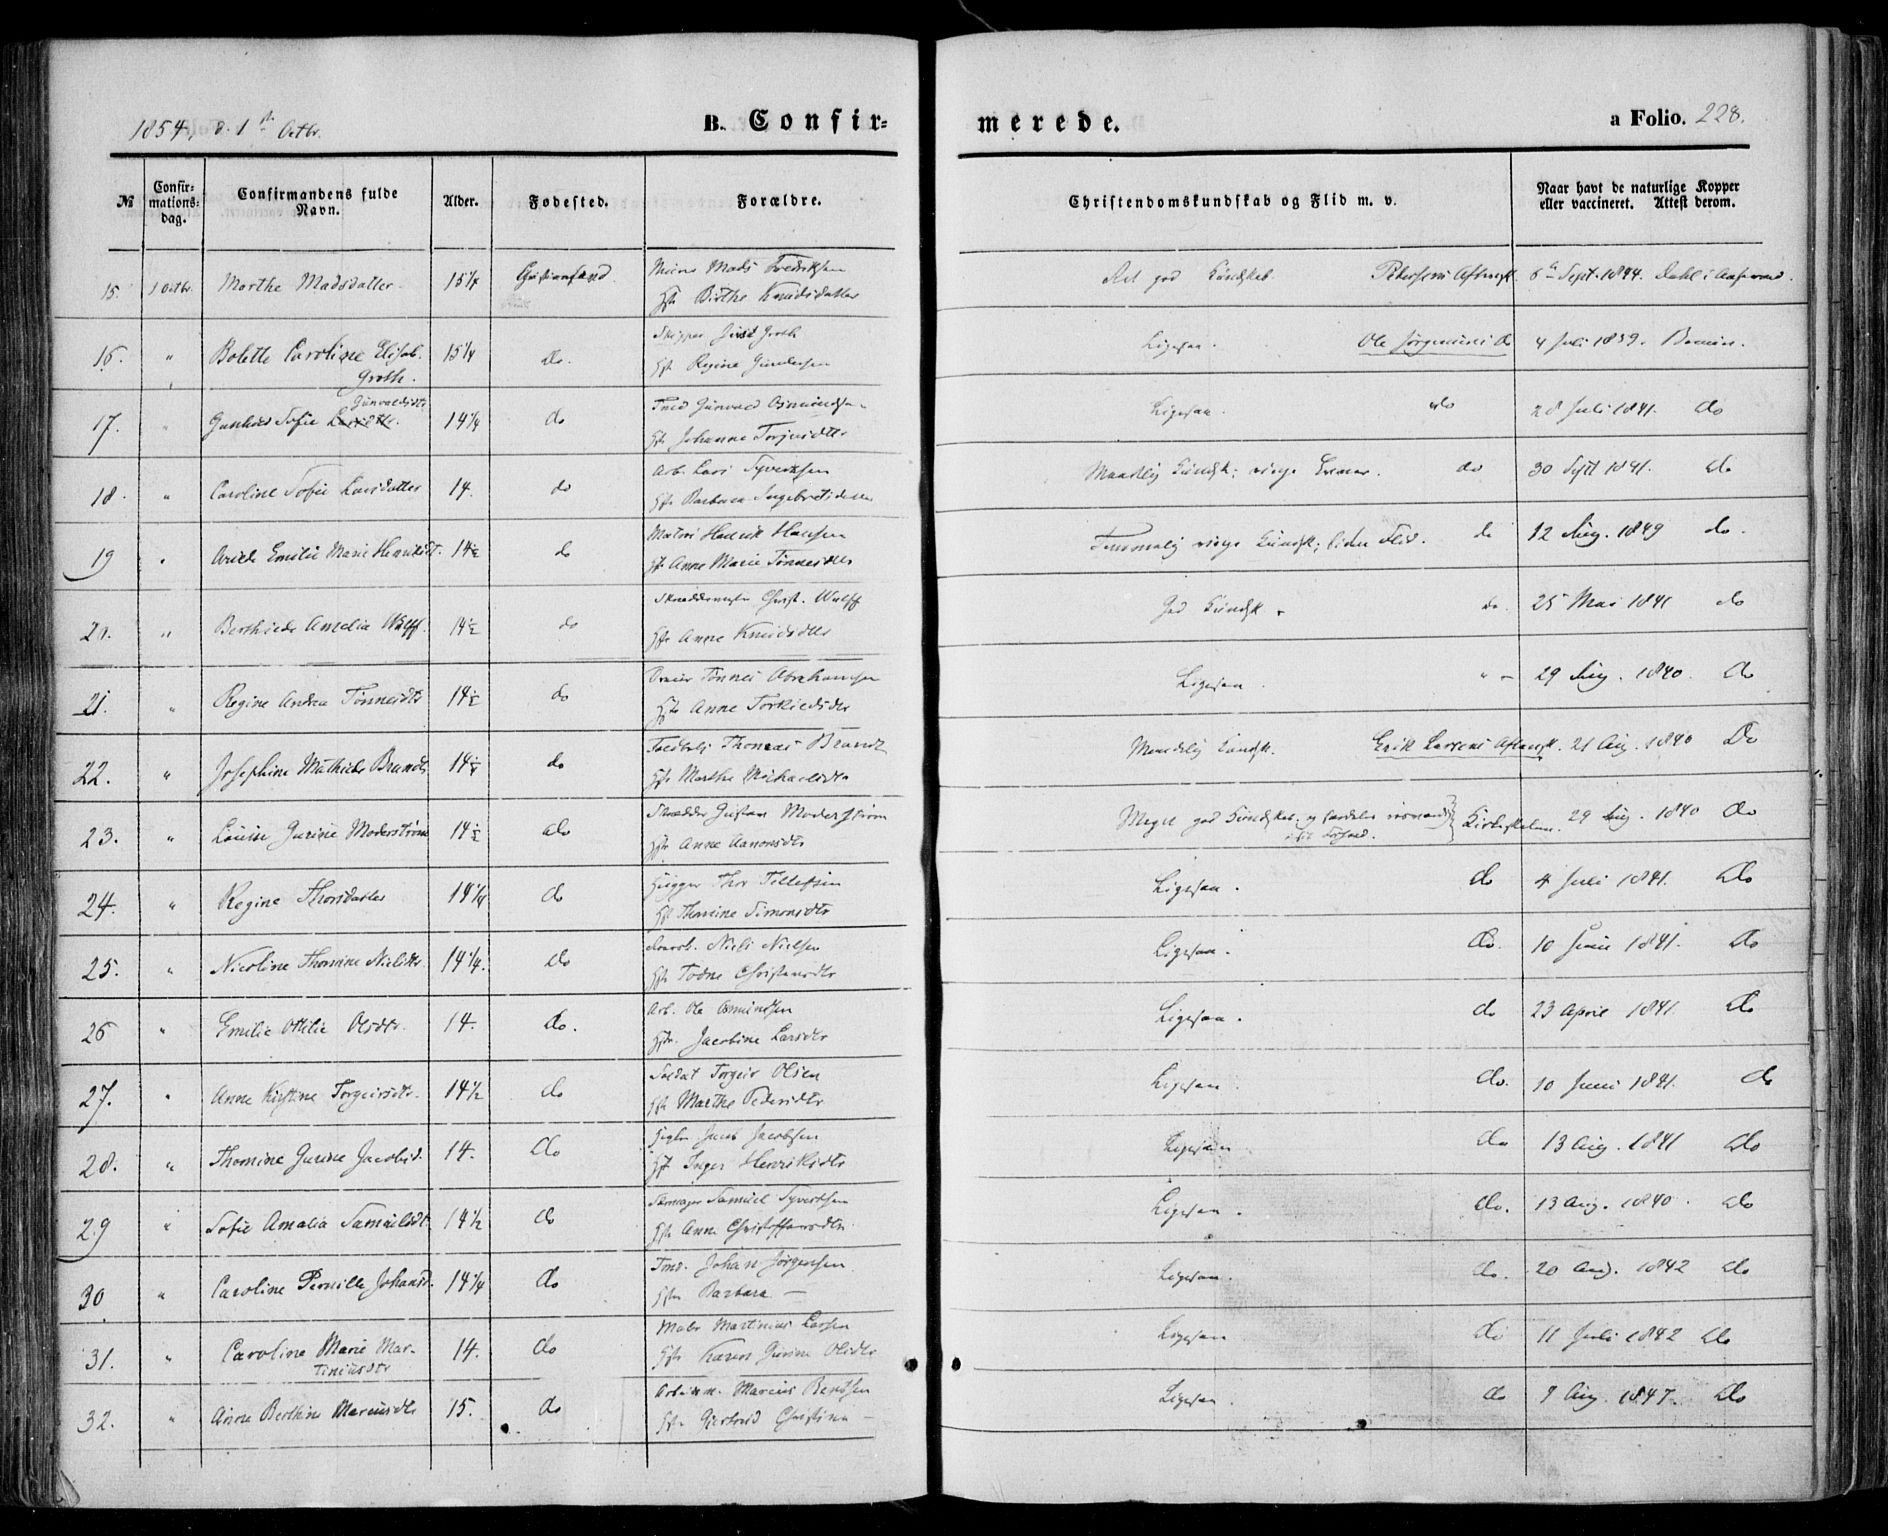 1854, d. 1ste Octbr.
B. Confir=
merede.
a Folio. 228.
№ Confir=mations=dag. Confirmandens fulde Navn. Alder. Fødested. Forældre. Christendomskundskab og Flid m. v. Naar havt de naturlige Kopper eller vaccineret. Attest derom.
15. 1 Octbr. Marthe Madsdatter. 15 1/4 Christiansand Mads Fredriksen
Birthe Knudsdatter 6te Sept. 1844. Dahl i
16. " Bolette Caroline Elisab. Groth. 15 1/4 do. Skipper Groth
Regine Gundersen Ligesaa. Ole Jørgensens do 4 Juli 1839.
17. " Sofie Gunvaldsdtr. 14 1/4 do Gunvald Osmundsen
Johanne Ligesaa. do 28 Juli 1841. do
18. " Caroline Sofie Larsdatter 14. do Arb. Lars Syvertsen
Barbara Kundsk; ringe Evner. do 30 Sept 1841. do
19 " Emilie Marie 14 1/2 do Matros Henrik Hansen
Anne Marie Tønnesdtr ringe Kundsk; liden Flid. do 12 Aug. 1849 do.
20. " Amalia Wulff. 14 1/2 do Christ. Wulff
Anne Knudsdtr God Kundsk do. 25 Mai 1841 do
21. " Regine Andrea Tønnesdtr 14 1/2 do Tønnes Abrahamsen
Anne Torkildsdtr Ligesaa. " 29 Aug. 1840. do
22. " Josephine Mathilde Brandt 14 1/4 do Thomas Brandt
Marthe Michaelsdtr Kundsk. Erik Larsens 21 Aug. 1840 Do
23. " Louise Gurine Moderstrøm 14 1/2 do Skrædder Gustav Moderstrøm
Anne Aanonsdtr Meget god Kundskab 29 Aug. 1840 do
24. " Regine Thorsdatter 14 1/4 do Thor Tellefsen
Thomine Simonsdtr Ligesaa. do 4 Juli 1841. do
25. " Nicoline Thomine Nielsdtr. 14 1/4. do Niels Nielsen
Todne Christensdtr Ligesaa. do. 10 Juni 1841. do
26 " Emilie Ottilie Olsdtr. 14. do. Arb. Ole Osmundsen
Jacobine Larsdtr Ligesaa. do 23 April 1841. do
27. " Anne Kirstine Torgeirsdtr. 14 1/2 do Soldat Torgeir Olsen
Marthe Pedersdtr Ligesaa. do. 10 Juni 1841. do
28. " Thomine Gurine Jacobsd. 14. do Jacobsen
Inger Henriksdtr Ligesaa do 13 Aug. 1841 do
29 " Sofie Amalia Samuelsdtr 14 1/2 do Skomager Samuel Syvertsen
Anne Christoffersdtr Ligesaa. do. 13 Aug. 1840. do
30 " Caroline Pernille Johansd. 14 1/4 do Johan Jørgensen
Barbara — Ligesaa. do. 20 Aug. 1842 do
31. " Caroline Marie Martiniusdtr 14. do Martinius Larsen
Karen Gurine Olsdtr Ligesaa do 11 Juli 1842 do
32. " Anne Berthine Marcusdtr 15. do Marcus Bentsen
Gjertrud Christine — Ligesaa. do 9 Aug. 1847. do